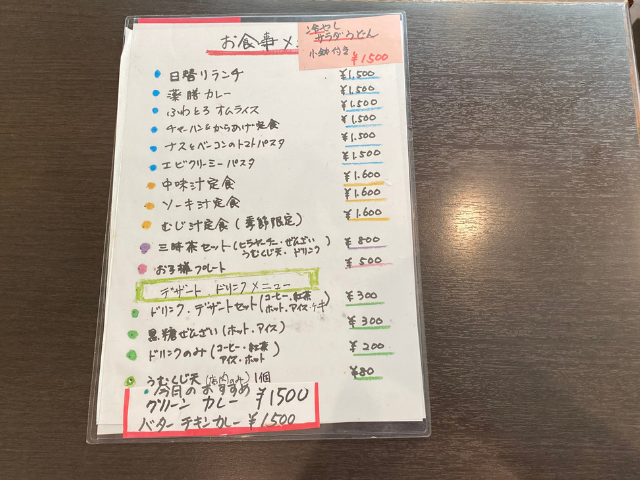 お食事メ
冷やし
サラダうどん
小鉢付き
¥1500
日替りランチ ¥1,500
薬膳カレー ¥1,500
ふわとろオムライス ¥1,500
チャーハン&からあげ定食 ¥1,500
ナスとベーコンのトマトパスタ ¥1,500
エビクリーミーパスタ ¥1,500
中味汁定食 ¥1.600
ソーキ汁定食 ¥1.600
むじ汁定食(季節限定) ¥1.600
三時茶セット(ヒラヤーチー・ぜんざい ¥800
うむくじ天・ドリンク
お子様プレート ¥500
デザート・ドリンクメニュー
ドリンク・デザートセット(コーヒー・紅茶 ¥300
ホット・アイス・ケーキ
黒糖ぜんざい(ホット・アイス) ¥300
ドリンクのみ(コーヒー・紅茶 ¥200
アイス・ホット)
うむくじ天(店内のみ)1個 ¥80
・今日のおすすめ
グリーンカレー ¥1500
バターチキンカレー ¥1500